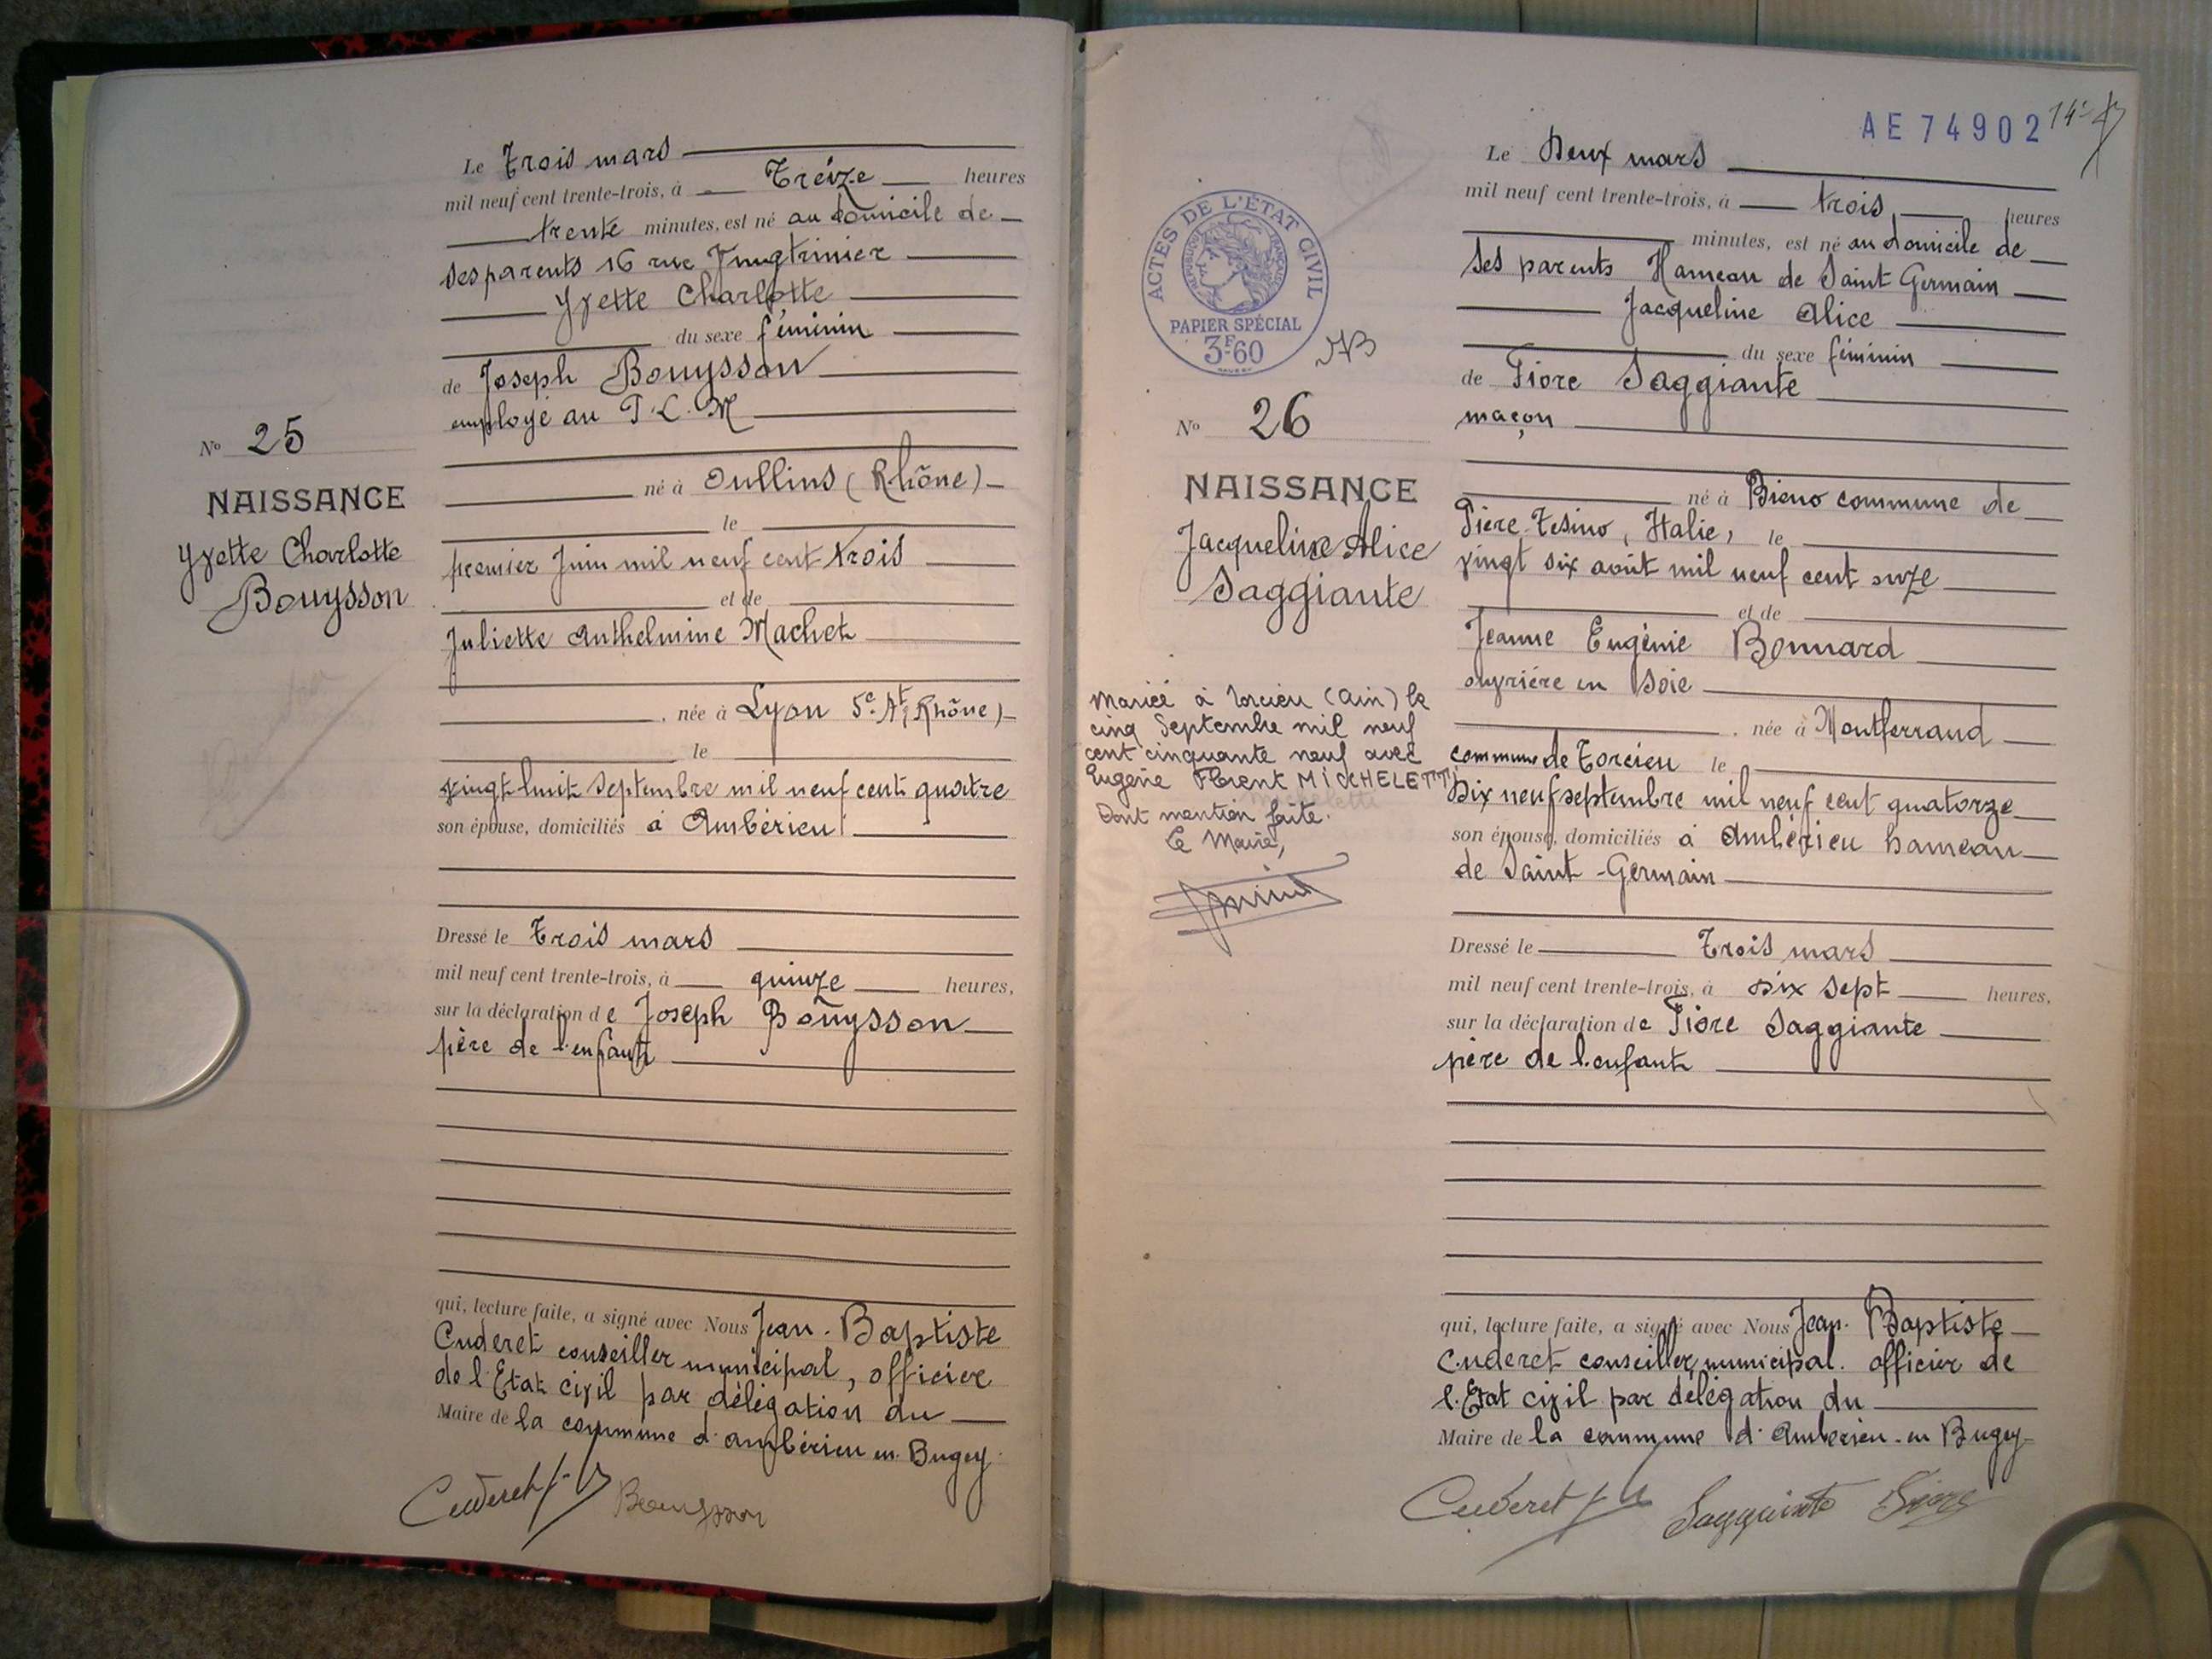 Le Trois mars
mil neuf cent trente-trois, à Treize heures
trente minutes, est né au domicile de
ses parents 16 rue
Yvette Charlotte
du sexe féminin
de Joseph Bouysson
employé au P.L.M
né à Oullins (Rhône)
le
premier Juin mil neuf cent trois
et de
Juliette Anthelmine Machet
, née à Lyon 5e At (Rhône)
le
vingt huit Septembre mil neuf cent quatre
son épouse, domiciliés à Ambérieu
No 25
NAISSANCE
Yvette Charlotte
Bouysson
Dressé le Trois mars
mil neuf cent trente-trois, à quinze heures,
sur la déclaration de Joseph Bouysson
père de l'enfant
qui, lecture faite, a signé avec Nous Jean-Baptiste
Cuderet conseiller municipal, officier
de l'Etat civil par délégation du
Maire de la commune d'Ambérieu en Bugey
Cuderet
Bouysson
AE 74902
14e
Le Deux mars
mil neuf cent trente-trois, à trois, heures
minutes, est né au domicile de
ses parents Hameau de Saint Germain
Jacqueline Alice
du sexe féminin
de Fiore Saggiante
maçon
né à Bieno commune de
Piere-Tesino, Italie, le
vingt six août mil neuf cent onze
et de
Jeanne Eugénie Bonnard
ouvrière en soie
, née à Montferrand
commune de Torcieu le
Dix neuf septembre mil neuf cent quatorze
son épouse, domiciliés à Ambérieu hameau
de Saint-Germain
ACTES DE L'ÉTAT CIVIL
RÉPUBLIQUE FRANÇAISE
PAPIER SPÉCIAL
3F60
No 26
NAISSANCE
Jacqueline Alice
Saggiante
Mariée à Torcieu (Ain) le
cinq Septembre mil neuf
cent cinquante neuf avec
Eugène Florent MICHELETTI
Dont mention faite.
Le Maire,
Dressé le Trois mars
mil neuf cent trente-trois, à dix sept heures,
sur la déclaration de Fiore Saggiante
père de l'enfant
qui, lecture faite, a signé avec Nous Jean-Baptiste
Cuderet conseiller municipal. officier de
l'Etat civil par délégation du
Maire de la commune d'Ambérieu-en Bugey
Cuderet
Saggiante Fiore